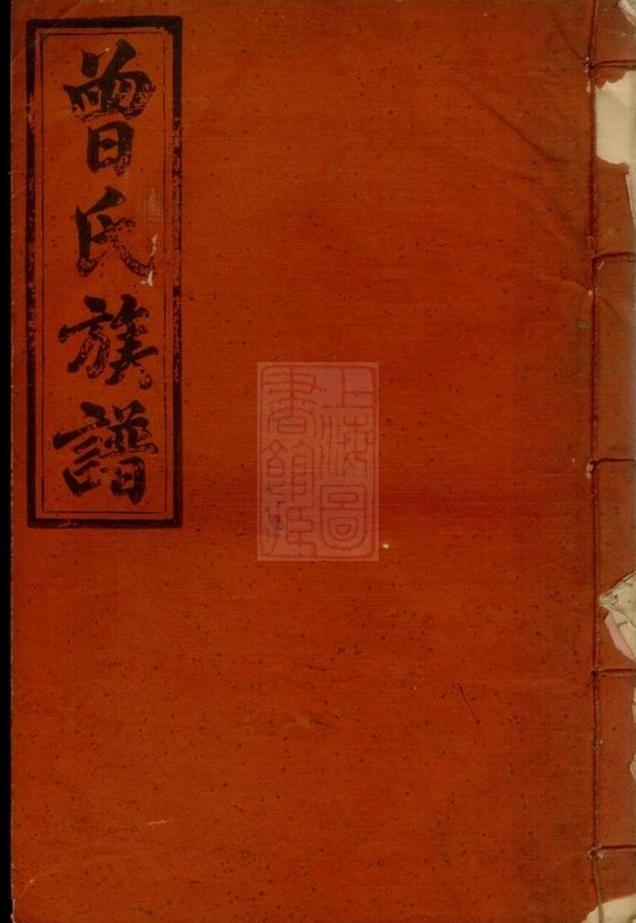 曾氏族譜
上海圖
書館藏